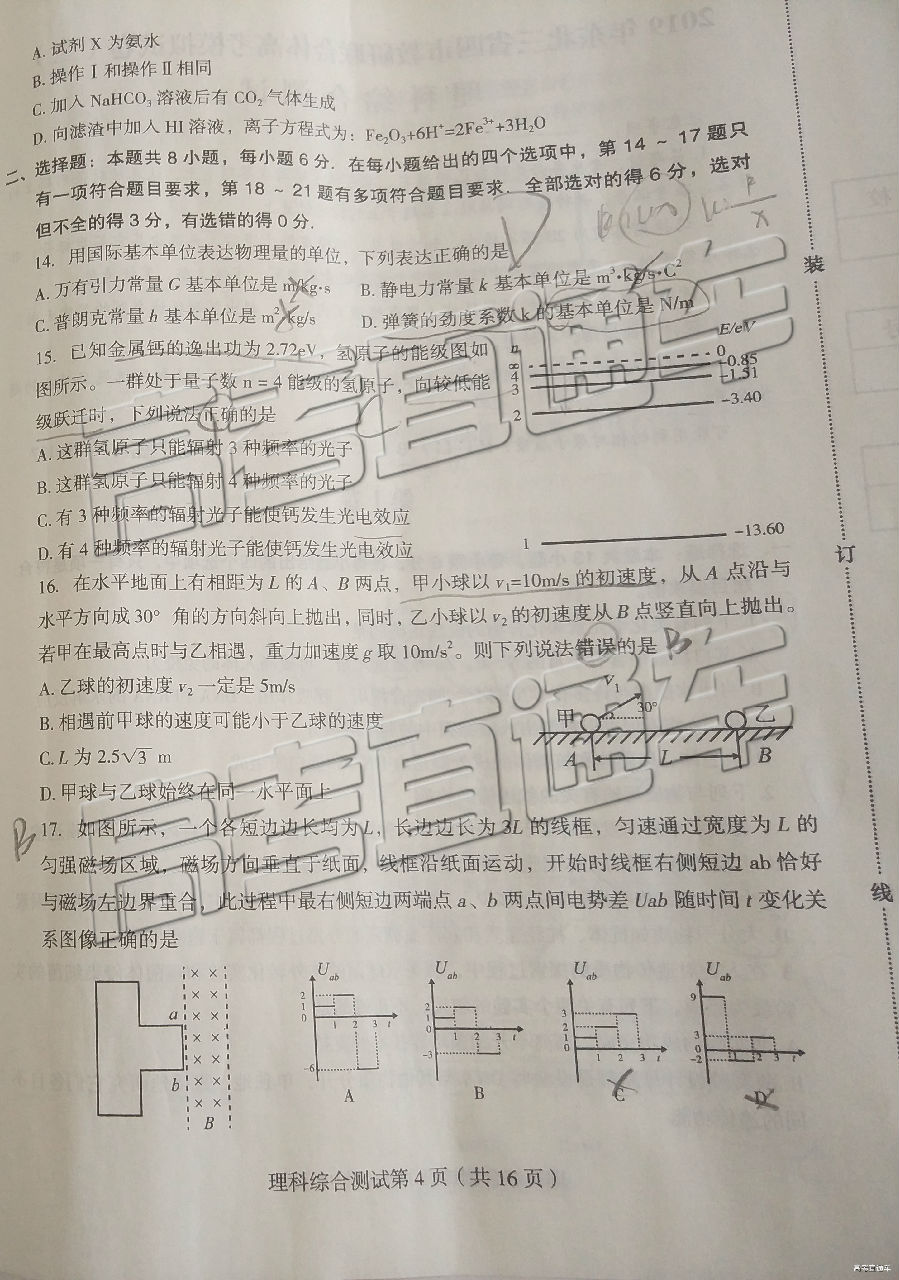 A. 试剂 X 为氨水
B. 操作Ⅰ和操作Ⅱ相同
C. 加入 NaHCO₃ 溶液后有 CO₂ 气体生成
D. 向滤渣中加入 HI 溶液，离子方程式为：Fe₂O₃+6H⁺=2Fe³⁺+3H₂O
二、选择题：本题共 8 小题，每小题 6 分．在每小题给出的四个选项中，第 14 ~ 17 题只
有一项符合题目要求，第 18 ~ 21 题有多项符合题目要求．全部选对的得 6 分，选对
但不全的得 3 分，有选错的得 0 分．
14. 用国际基本单位表达物理量的单位，下列表达正确的是
A. 万有引力常量 G 基本单位是 m/kg·s B. 静电力常量 k 基本单位是 m³·kg/s·C²
C. 普朗克常量 h 基本单位是 m²·kg/s D. 弹簧的劲度系数 k 的基本单位是 N/m
15. 已知金属钙的逸出功为 2.72eV，氢原子的能级图如
图所示。一群处于量子数 n = 4 能级的氢原子，向较低能
级跃迁时，下列说法正确的是
A. 这群氢原子只能辐射 3 种频率的光子
B. 这群氢原子只能辐射 4 种频率的光子
C. 有 3 种频率的辐射光子能使钙发生光电效应
D. 有 4 种频率的辐射光子能使钙发生光电效应
n E/eV
∞ 0
4 -0.85
3 -1.51
2 -3.40
1 -13.60
16. 在水平地面上有相距为 L 的 A、B 两点，甲小球以 v₁=10m/s 的初速度，从 A 点沿与
水平方向成 30° 角的方向斜向上抛出，同时，乙小球以 v₂ 的初速度从 B 点竖直向上抛出。
若甲在最高点时与乙相遇，重力加速度 g 取 10m/s²。则下列说法错误的是 B
A. 乙球的初速度 v₂ 一定是 5m/s
B. 相遇前甲球的速度可能小于乙球的速度
C. L 为 2.5√3 m
D. 甲球与乙球始终在同一水平面上
v₁
甲 30° 乙
A L B
B 17. 如图所示，一个各短边边长均为 L，长边边长为 3L 的线框，匀速通过宽度为 L 的
匀强磁场区域，磁场方向垂直于纸面，线框沿纸面运动，开始时线框右侧短边 ab 恰好
与磁场左边界重合，此过程中最右侧短边两端点 a、b 两点间电势差 Uab 随时间 t 变化关
系图像正确的是
a
b
B
U_ab 2 1 0 -6 1 2 3 t
A
U_ab 2 1 0 -3 1 2 3 t
B
U_ab 3 2 1 0 1 2 3 t
C
U_ab 9 3 0 -2 1 2 3 t
D
理科综合测试第 4 页（共 16 页）
装
订
线
高考直通车
高考直通车
高考直通车